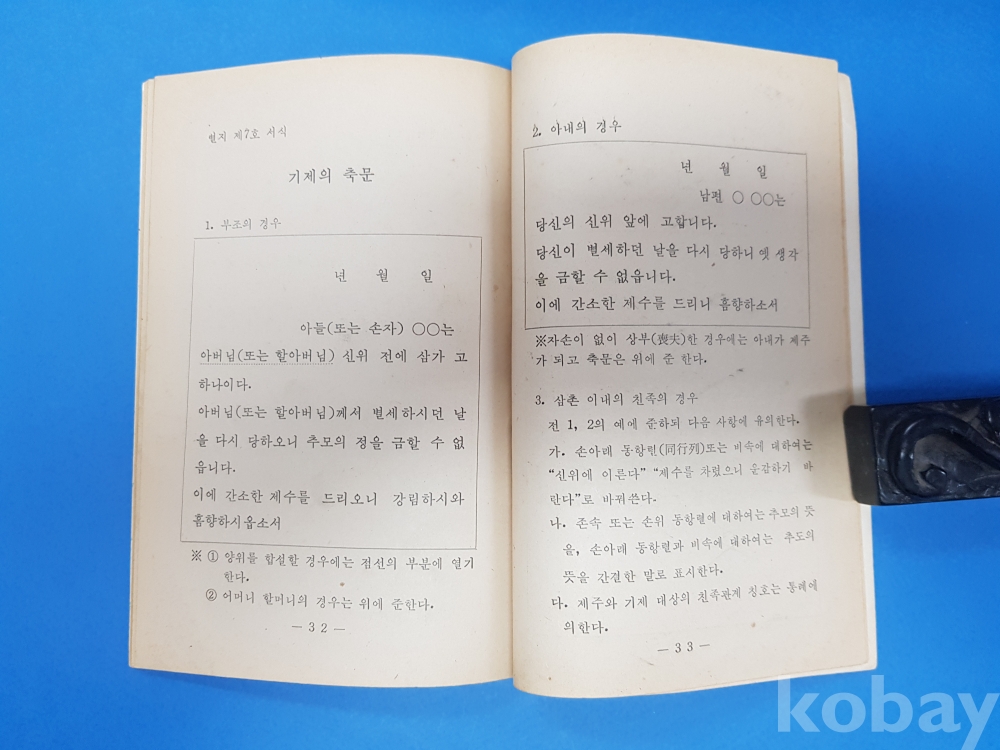 별지 제7호 서식
기제의 축문
1. 부조의 경우
년 월 일
아들(또는 손자) ○○는
아버님(또는 할아버님) 신위 전에 삼가 고
하나이다.
아버님(또는 할아버님)께서 별세하시던 날
을 다시 당하오니 추모의 정을 금할 수 없
읍니다.
이에 간소한 제수를 드리오니 강림하시와
흠향하시옵소서
※ ① 양위를 합설할 경우에는 점선의 부분에 열기
한다.
② 어머니 할머니의 경우는 위에 준한다.
— 3 2 —
2. 아내의 경우
년 월 일
남편 ○ ○○는
당신의 신위 앞에 고합니다.
당신이 별세하던 날을 다시 당하니 옛 생각
을 금할 수 없읍니다.
이에 간소한 제수를 드리니 흠향하소서
※자손이 없이 상부(喪夫)한 경우에는 아내가 제주
가 되고 축문은 위에 준 한다.
3. 삼촌 이내의 친족의 경우
전 1, 2의 예에 준하되 다음 사항에 유의한다.
가. 손아래 동항렬(同行列)또는 비속에 대하여는
“신위에 이른다” “제수를 차렸으니 응감하기 바
란다”로 바꿔쓴다.
나. 존속 또는 손위 동항렬에 대하여는 추모의 뜻
을, 손아래 동항렬과 비속에 대하여는 추도의
뜻을 간결한 말로 표시한다.
다. 제주와 기제 대상의 친족관계 칭호는 통례에
의한다.
— 3 3 —
kobay